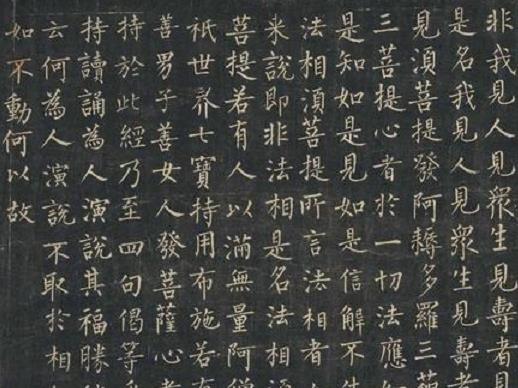 非我見人見衆生見壽者見
是名我見人見衆生見壽者
見湏菩提發阿耨多羅三藐
三菩提心者於一切法應
是知如是見如是信解不
法相湏菩提所言法相者
来說即非法相是名法相
菩提若有人以滿無量阿僧
祇世界七寶持用布施若有
善男子善女人發菩薩心者
持於此經乃至四句偈等
持讀誦為人演說其福勝
云何為人演說不取於相
如不動何以故